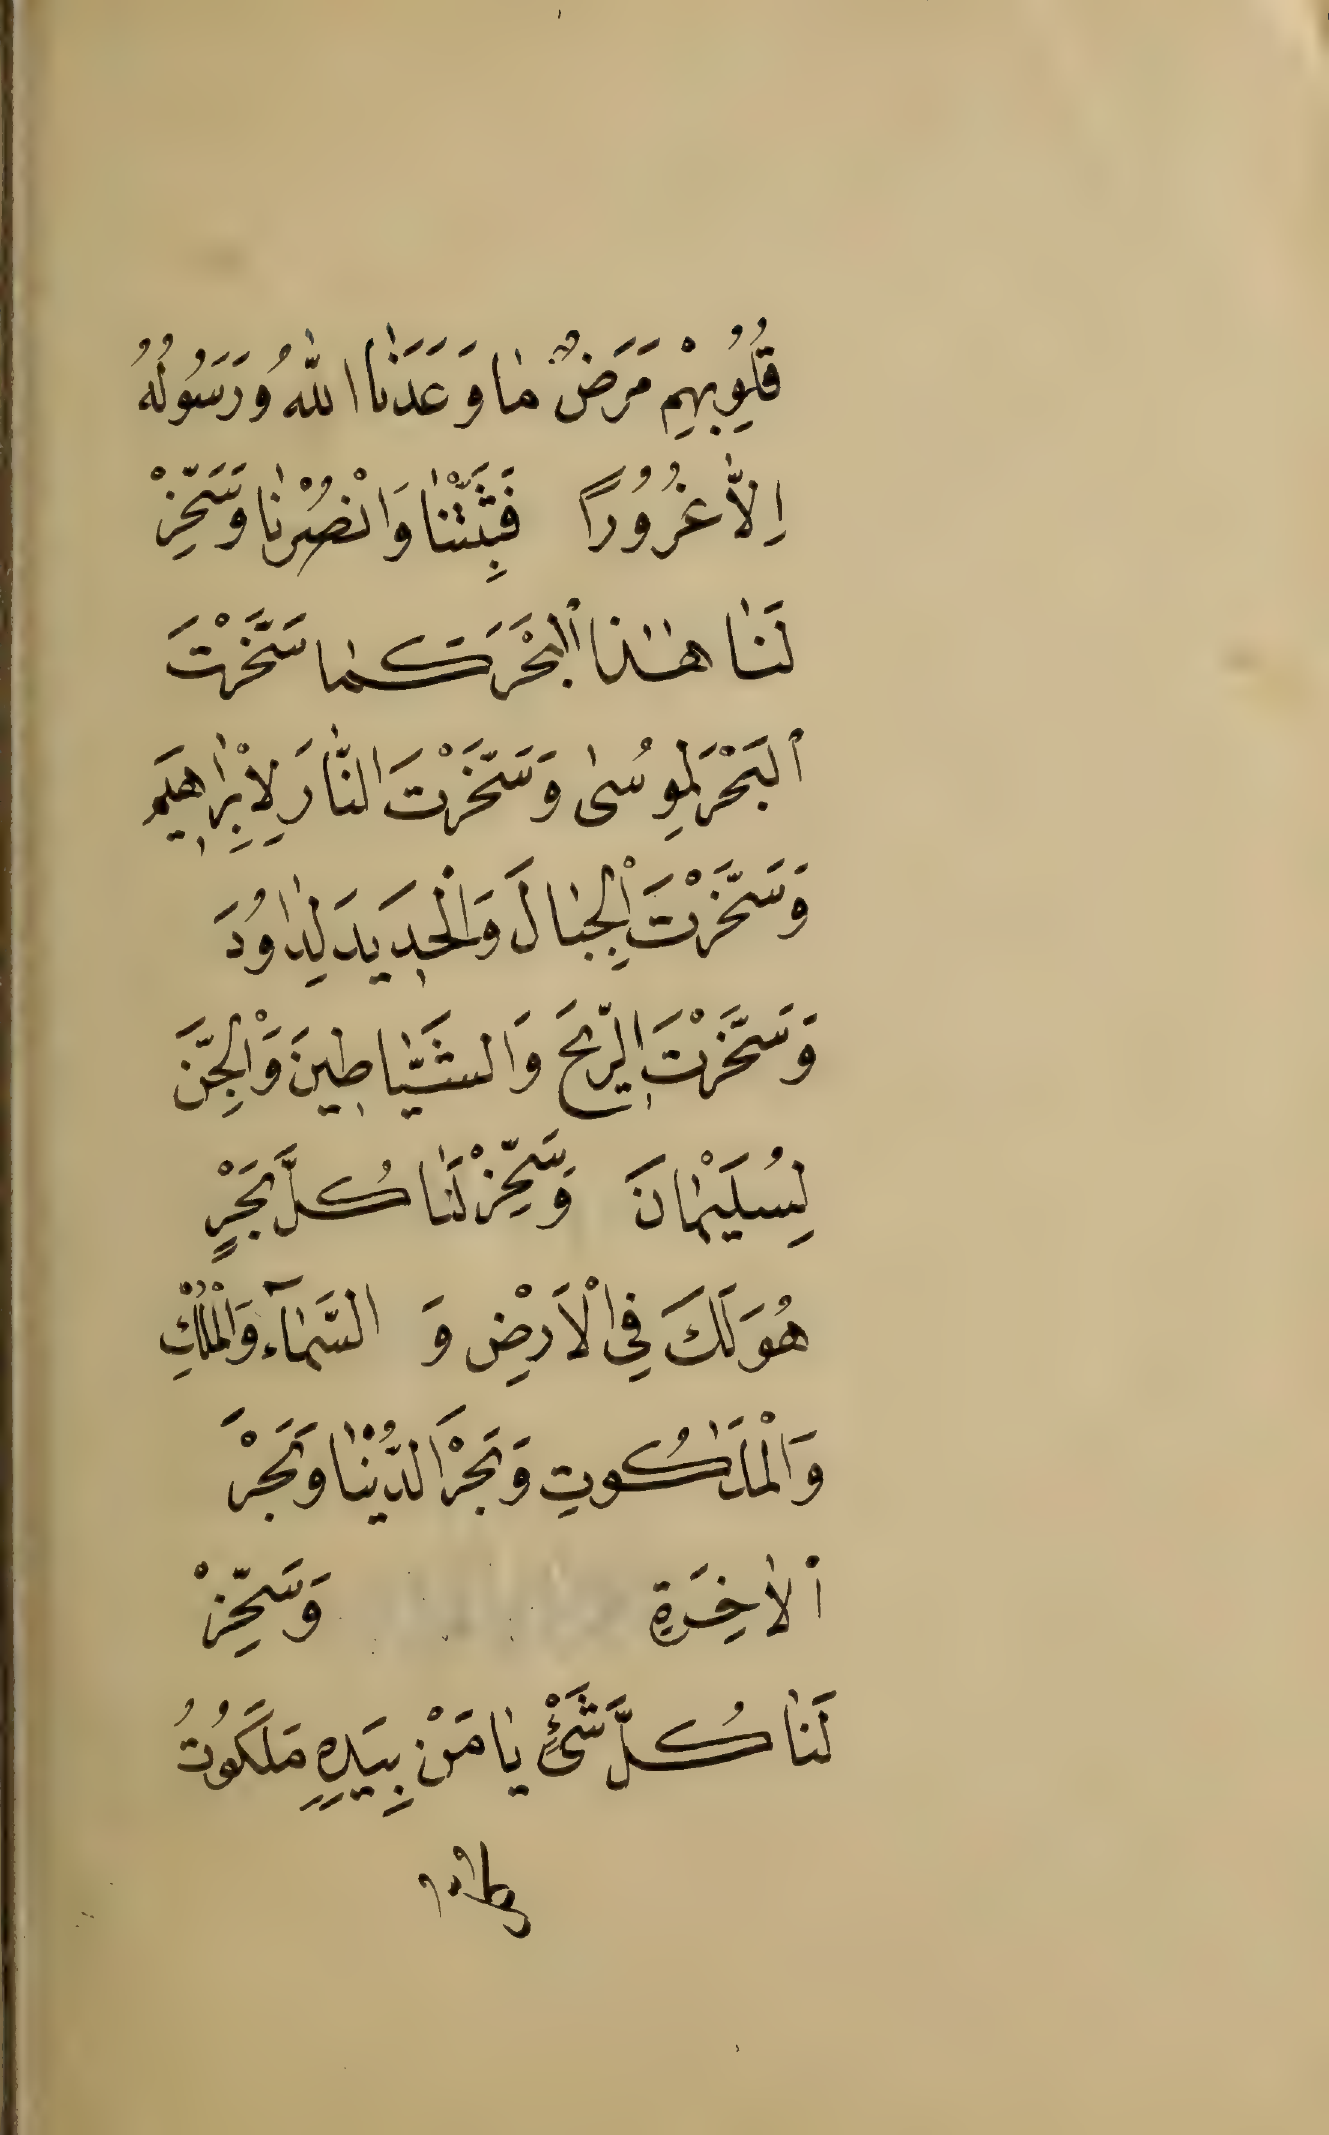 قُلُوبِهِمْ مَرَضٌ مَا وَعَدَنَا اللهُ وَرَسُولُهُ
اِلَّا غُرُورًا فَثَبِّتْنَا وَانْصُرْنَا وَسَخِّرْ
لَنَا هٰذَا الْبَحْرَ كَمَا سَخَّرْتَ
اَلْبَحْرَ لِمُوسٰى وَسَخَّرْتَ النَّارَ لِاِبْرَاهِيمَ
وَسَخَّرْتَ الْجِبَالَ وَالْحَدِيدَ لِدَاوُدَ
وَسَخَّرْتَ الرِّيحَ وَالشَّيَاطِينَ وَالْجِنَّ
لِسُلَيْمَانَ وَسَخِّرْ لَنَا كُلَّ بَحْرٍ
هُوَ لَكَ فِي الْاَرْضِ وَ السَّمَاءِ وَالْمُلْكِ
وَالْمَلَكُوتِ وَبَحْرَ الدُّنْيَا وَبَحْرَ
اَلْاٰخِرَةِ وَسَخِّرْ
لَنَا كُلَّ شَيْءٍ يَا مَنْ بِيَدِهِ مَلَكُوتُ